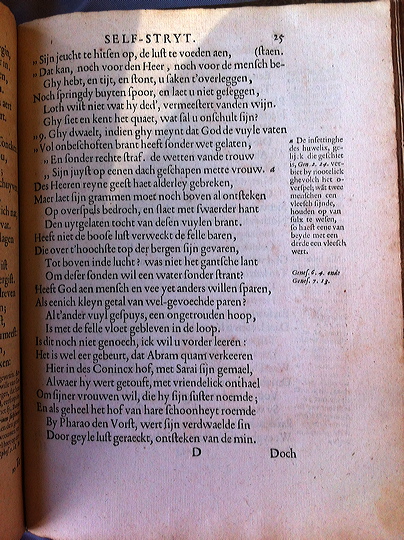 SELF-STRYT. 25
„ Sijn jeucht te hitsen op, de lust te voeden aen, (staen.
„ Dat kan, noch voor den Heer, noch voor de mensch be-
Ghy hebt, en tijt, en stont, u saken t'overleggen,
Noch springdy buyten spoor, en laet u niet geseggen,
Loth wist niet wat hy ded', vermeestert vanden wijn.
Ghy siet en kent het quaet, wat sal u onschult sijn?
„ 9. Ghy dwaelt, indien ghy meynt dat God de vuyle vaten
„ Vol onbeschoften brant heeft sonder wet gelaten,
„ En sonder rechte straf. de wetten vande trouw
„ Sijn juyst op eenen dach geschapen mette vrouw. a
Des Heeren reyne geest haet alderley gebreken,
Maer laet sijn grammen moet noch boven al ontsteken
Op overspels bedroch, en slaet met swaerder hant
Den uytgelaten tocht van desen vuylen brant.
Heeft niet de boose lust verweckt de felle baren,
Die over t'hoochste top der bergen sijn gevaren,
Tot boven inde lucht? was niet het gantsche lant
Om dese sonden wil een water sonder strant?
Heeft God aen mensch en vee yet anders willen sparen,
Als eenich kleyn getal van wel-gevoechde paren?
Al t'ander vuyl gespuys, een ongetrouden hoop,
Is met de felle vloet gebleven in de loop.
Is dit noch niet genoech, ick wil u vorder leeren:
Het is wel eer gebeurt, dat Abram quam verkeeren
Hier in des Conincx hof, met Sarai sijn gemael,
Alwaer hy wert getoeft, met vriendelick onthael
Om sijner vrouwen wil, die hy sijn suster noemde;
En als geheel het hof van hare schoonheyt roemde
By Pharao den Vorst, wert sijn verdwaelde sin
Door geyle lust geraeckt, ontsteken van de min.
D Doch
a De insettinghe
des huwelix, ge-
lijck die geschiet
is, Gen. 2. 24. ver-
biet by nootelick
ghevolch het o-
verspel; want twee
menschen een
vleesch sijnde,
houden op van
sulx te wesen,
so haest eene van
beyde met een
derde een vleesch
wert.
Genes. 6. 4. ende
Genes. 7. 13.